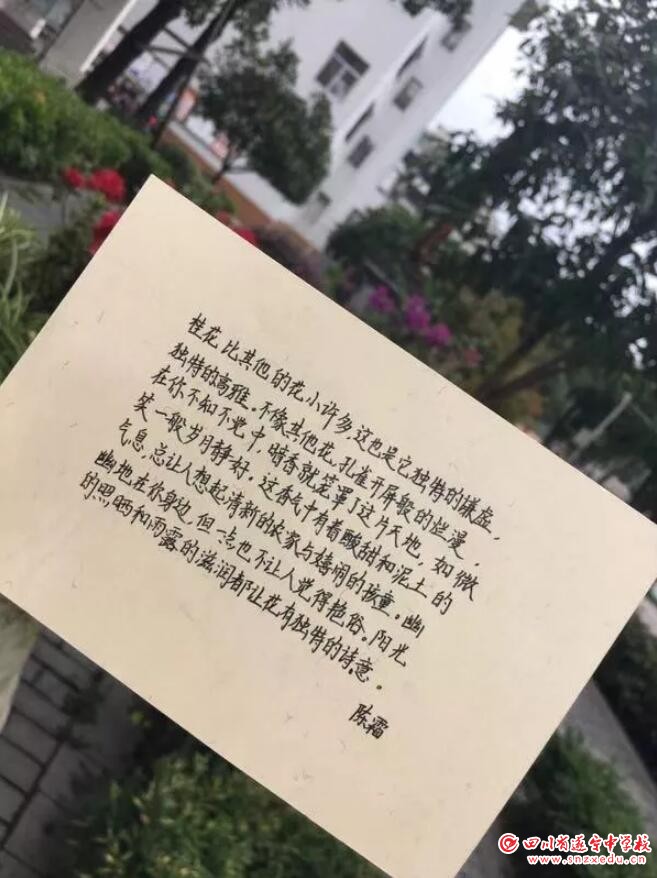 桂花比其他的花小许多,这也是它独特的谦虚,
独特的高雅。不像其他花,孔雀开屏般的烂漫,
在你不知不觉中,暗香就笼罩了这片天地,如微
笑一般岁月静好。这香气中有着酸甜和泥土的
气息,总让人想起清新的农家与嬉闹的孩童。幽
幽地在你身边,但一点也不让人觉得艳俗。阳光
的照晒和雨露的滋润都让花有独特的诗意。
陈霜
四川省遂宁中学校
www.snzxedu.cn